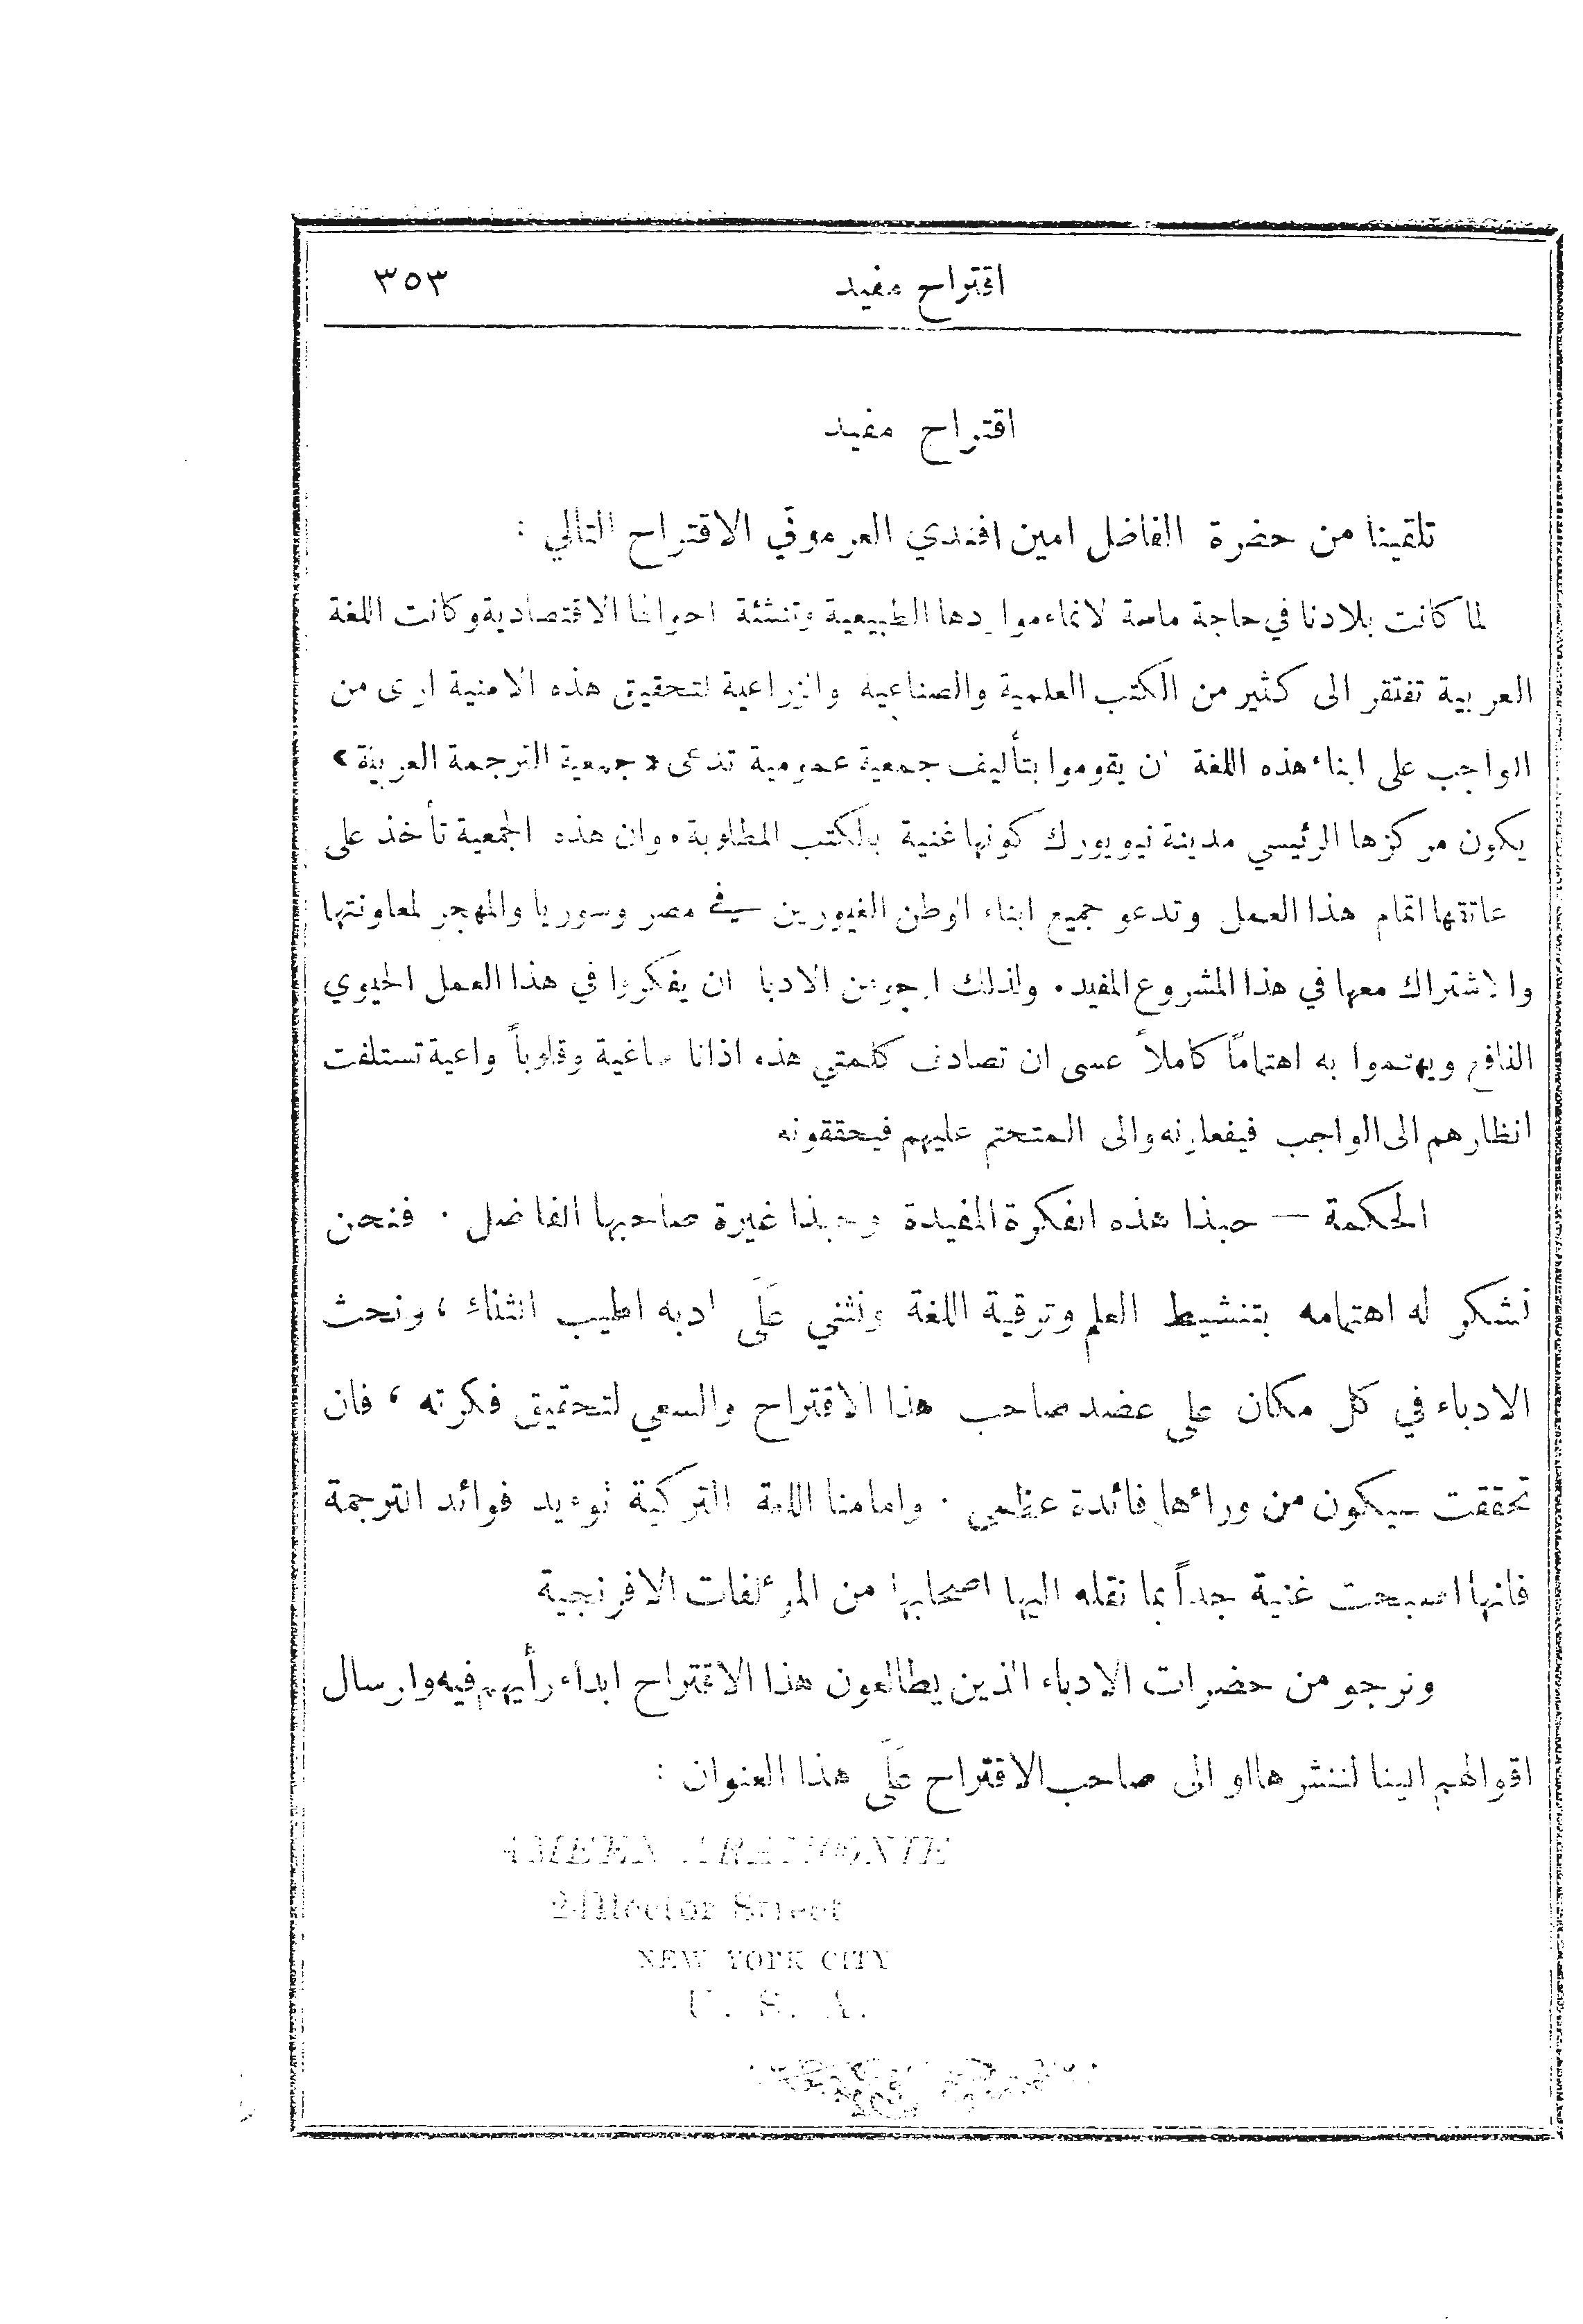 اقتراح مفيد ٣٥٣
اقتراح مفيد
تلقينا من حضرة الفاضل امين افندي العرموني الاقتراح التالي :
لما كانت بلادنا في حاجة ماسة لانماء مواردها الطبيعية وتنشئة احوالها الاقتصادية وكانت اللغة
العربية تفتقر الى كثير من الكتب العلمية والصناعية والزراعية لتحقيق هذه الامنية ارى من
الواجب على ابناء هذه اللغة ان يقوموا بتأليف جمعية عمومية تدعى « جمعية الترجمة العربية »
يكون مركزها الرئيسي مدينة نيويورك كونها غنية بالكتب المطلوبة . وان هذه الجمعية تأخذ على
عاتقها اتمام هذا العمل وتدعو جميع ابناء الوطن الغيورين في مصر وسوريا والمهجر لمعاونتها
والاشتراك معها في هذا المشروع المفيد . ولذلك ارجو من الادبا ان يفكروا في هذا العمل الحيوي
النافع ويهتموا به اهتمامًا كاملاً عسى ان تصادف كلمتي هذه اذانا صاغية وقلوباً واعية تستلفت
انظارهم الى الواجب فيفعلونه والى المتحتم عليهم فيحققونه
الحكمة — حبذا هذه الفكرة المفيدة وحبذا غيرة صاحبها الفاضل . فنحن
نشكر له اهتمامه بتنشيط العلم وترقية اللغة ونثني عَلَى ادبه اطيب الثناء ، ونحث
الادباء في كل مكان على عضد صاحب هذا الاقتراح والسعي لتحقيق فكرته ، فان
تحققت سيكون من ورائها فائدة عظمى . وامامنا اللغة التركية تؤيد فوائد الترجمة
فانها اصبحت غنية جداً بما نقله اليها اصحابها من المؤلفات الافرنجية
ونرجو من حضرات الادباء الذين يطالعون هذا الاقتراح ابداء رأيهم فيه وارسال
اقوالهم الينا لننشرها او الى صاحب الاقتراح عَلَى هذا العنوان :
AMEEN
Street
NEW YORK CITY
U. S. A.